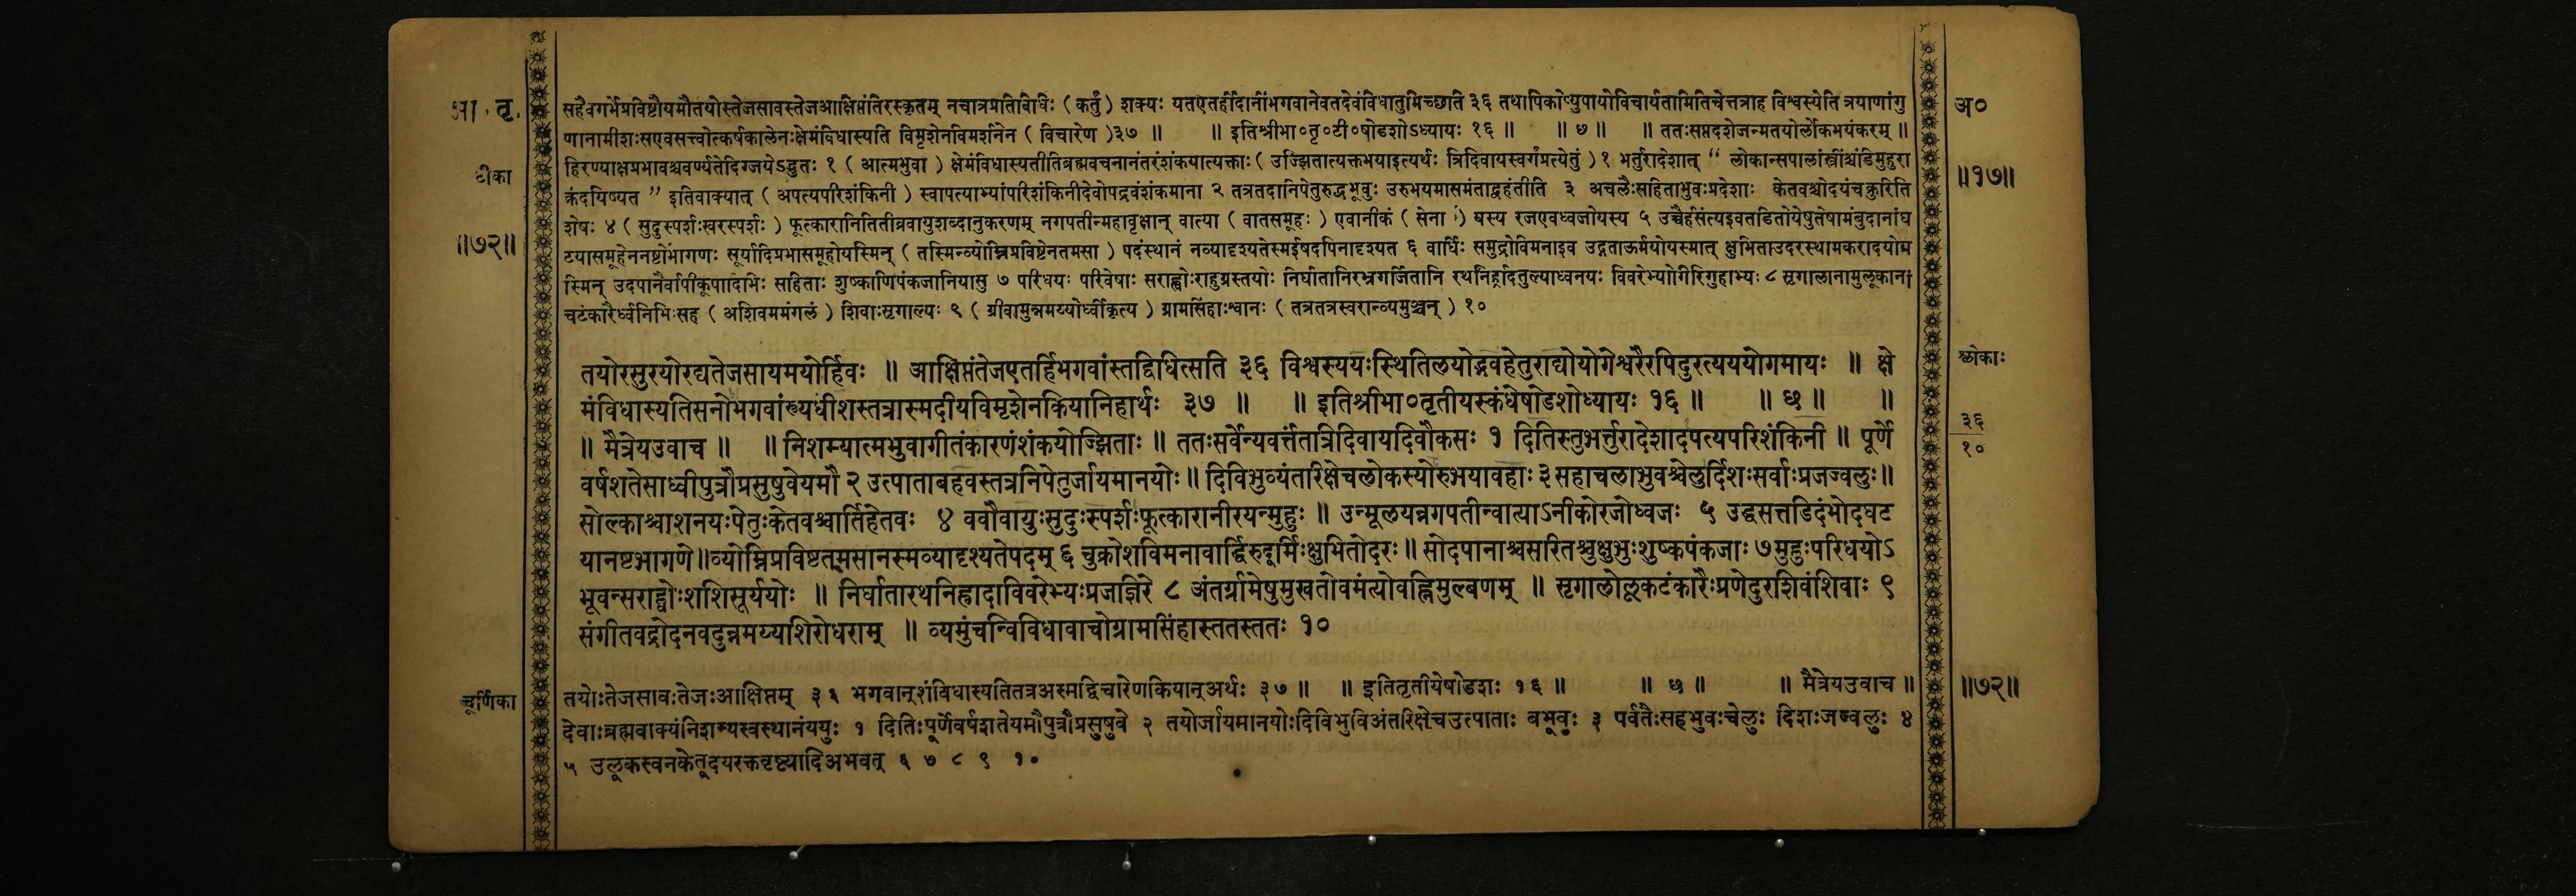 भा. तृ.
टीका
॥७२॥
सहैवगर्भेप्रविष्टौयमौतयोस्तेजसावस्तेजआक्षिप्तंतिरस्कृतम् नचात्रप्रतिविधिः ( कर्तुं ) शक्यः यतएतर्हीदानींभगवानेवतदेवंविधातुमिच्छति ३६ तथापिकोप्युपायोविचार्यतामितिचेत्तत्राह विश्वस्येति त्रयाणांगु
णानामीशःसएवसत्त्वोत्कर्षकालेनःक्षेमंविधास्यति विमृशेनविमर्शनेन ( विचारेण )३७ ॥ ॥ इतिश्रीभा०तृ०टी०षोडशोऽध्यायः १६ ॥ ॥ ७ ॥ ॥ ततःसप्तदशेजन्मतयोर्लोकभयंकरम् ॥
हिरण्याक्षप्रभावश्चवर्ण्यतेदिग्जयेऽद्भुतः १ ( आत्मभुवा ) क्षेमंविधास्यतीतिब्रह्मवचनानंतरंशंकयात्यक्ताः ( उज्झितात्यक्तभयाइत्यर्थः त्रिदिवायस्वर्गंप्रत्येतुं ) १ भर्तुरादेशात् “ लोकान्सपालांस्त्रींश्चंडिमुहुरा
क्रंदयिष्यत ” इतिवाक्यात् ( अपत्यपरिशंकिनी ) स्वापत्याभ्यांपरिशंकिनीदेवोपद्रवंशंकमाना २ तत्रतदानिपेतुरुद्बभूवुः उरुभयमासमंताद्वहंतीति ३ अचलैःसहिताभुवःप्रदेशाः केतवश्चोदयंचक्रुरिति
शेषः ४ ( सुदुःस्पर्शःखरस्पर्शः ) फूत्कारानितितीव्रवायुशब्दानुकरणम् नगपतीन्महावृक्षान् वात्या ( वातसमूहः ) एवानीकं ( सेना ) यस्य रजएवध्वजोयस्य ५ उच्चैर्हसंत्यइवतडितोयेषुतेषामंबुदानांघ
टयासमूहेननष्टोभागणः सूर्यादिप्रभासमूहोयस्मिन् ( तस्मिन्व्योम्निप्रविष्टेनतमसा ) पदंस्थानं नव्यादृश्यतेस्मईषदपिनादृश्यत ६ वार्धिः समुद्रोविमनाइव उद्गताऊर्मयोयस्मात् क्षुभिताउदरस्थामकरादयोय
स्मिन् उदपानैर्वापीकूपादिभिः सहिताः शुष्काणिपंकजानियासु ७ परिधयः परिवेषाः सराह्वोःराहुग्रस्तयोः निर्घातानिरभ्रगर्जितानि रथनिर्ह्रादतुल्याध्वनयः विवरेभ्योगिरिगुहाभ्यः ८ सृगालानामुलूकानां
चटंकारैर्ध्वनिभिःसह ( अशिवममंगलं ) शिवाःसृगाल्यः ९ ( ग्रीवामुन्नमय्योर्ध्वीकृत्य ) ग्रामसिंहाःश्वानः ( तत्रतत्रस्वरान्व्यमुञ्चन् ) १०
अ०
॥१७॥
तयोरसुरयोरद्यतेजसायमयोर्हिवः ॥ आक्षिप्तंतेजएतर्हिभगवांस्तद्विधित्सति ३६ विश्वस्ययःस्थितिलयोद्भवहेतुराद्योयोगेश्वरैरपिदुरत्यययोगमायः ॥ क्षे
मंविधास्यतिसनोभगवांस्त्र्यधीशस्तत्रास्मदीयविमृशेनकियानिहार्थः ३७ ॥ ॥ इतिश्रीभा०तृतीयस्कंधेषोडशोध्यायः १६ ॥ ॥ छ ॥ ॥
॥ मैत्रेयउवाच ॥ ॥ निशम्यात्मभुवागीतंकारणंशंकयोज्झिताः ॥ ततःसर्वेन्यवर्त्तंतत्रिदिवायदिवौकसः १ दितिस्तुभर्त्तुरादेशादपत्यपरिशंकिनी ॥ पूर्णे
वर्षशतेसाध्वीपुत्रौप्रसुषुवेयमौ २ उत्पाताबहवस्तत्रनिपेतुर्जायमानयोः ॥ दिविभुव्यंतरिक्षेचलोकस्योरुभयावहाः ३ सहाचलाभुवश्चेलुर्दिशःसर्वाःप्रजज्वलुः ॥
सोल्काश्चाशनयःपेतुःकेतवश्चार्तिहेतवः ४ ववौवायुःसुदुःस्पर्शःफूत्कारानीरयन्मुहुः ॥ उन्मूलयन्नगपतीन्वात्याऽनीकोरजोध्वजः ५ उद्धसत्तडिदंभोदघट
यानष्टभागणे ॥ व्योम्निप्रविष्टतमसानस्मव्यादृश्यतेपदम् ६ चुक्रोशविमनावार्द्धिरुदूर्मिःक्षुभितोदरः ॥ सोदपानाश्चसरितश्चुक्षुभुःशुष्कपंकजाः ७ मुहुःपरिधयोऽ
भूवन्सराह्वोःशशिसूर्ययोः ॥ निर्घातारथनिर्ह्रादाविवरेभ्यःप्रजज्ञिरे ८ अंतर्ग्रामेषुमुखतोवमंत्योवह्निमुल्बणम् ॥ सृगालोलूकटंकारैःप्रणेदुरशिवंशिवाः ९
संगीतवद्रोदनवदुन्नमय्यशिरोधराम् ॥ व्यमुंचन्विविधावाचोग्रामसिंहास्ततस्ततः १०
श्लोकाः
३६
१०
चूर्णिका
तयोःतेजसावःतेजःआक्षिप्तम् ३६ भगवान्शंविधास्यतितत्रअस्मद्विचारेणकियान्अर्थः ३७ ॥ ॥ इतितृतीयेषोडशः १६ ॥ ॥ छ ॥ ॥ मैत्रेयउवाच ॥
देवाःब्रह्मवाक्यंनिशम्यस्वस्थानंययुः १ दितिःपूर्णेवर्षशतेयमौपुत्रौप्रसुषुवे २ तयोर्जायमानयोःदिविभुविअंतरिक्षेचउत्पाताः बभूवुः ३ पर्वतैःसहभुवःचेलुः दिशःजज्वलुः ४
५ उलूकस्वनकेतूदयरक्तवृष्ट्यादिअभवत् ६ ७ ८ ९ १०
॥७२॥